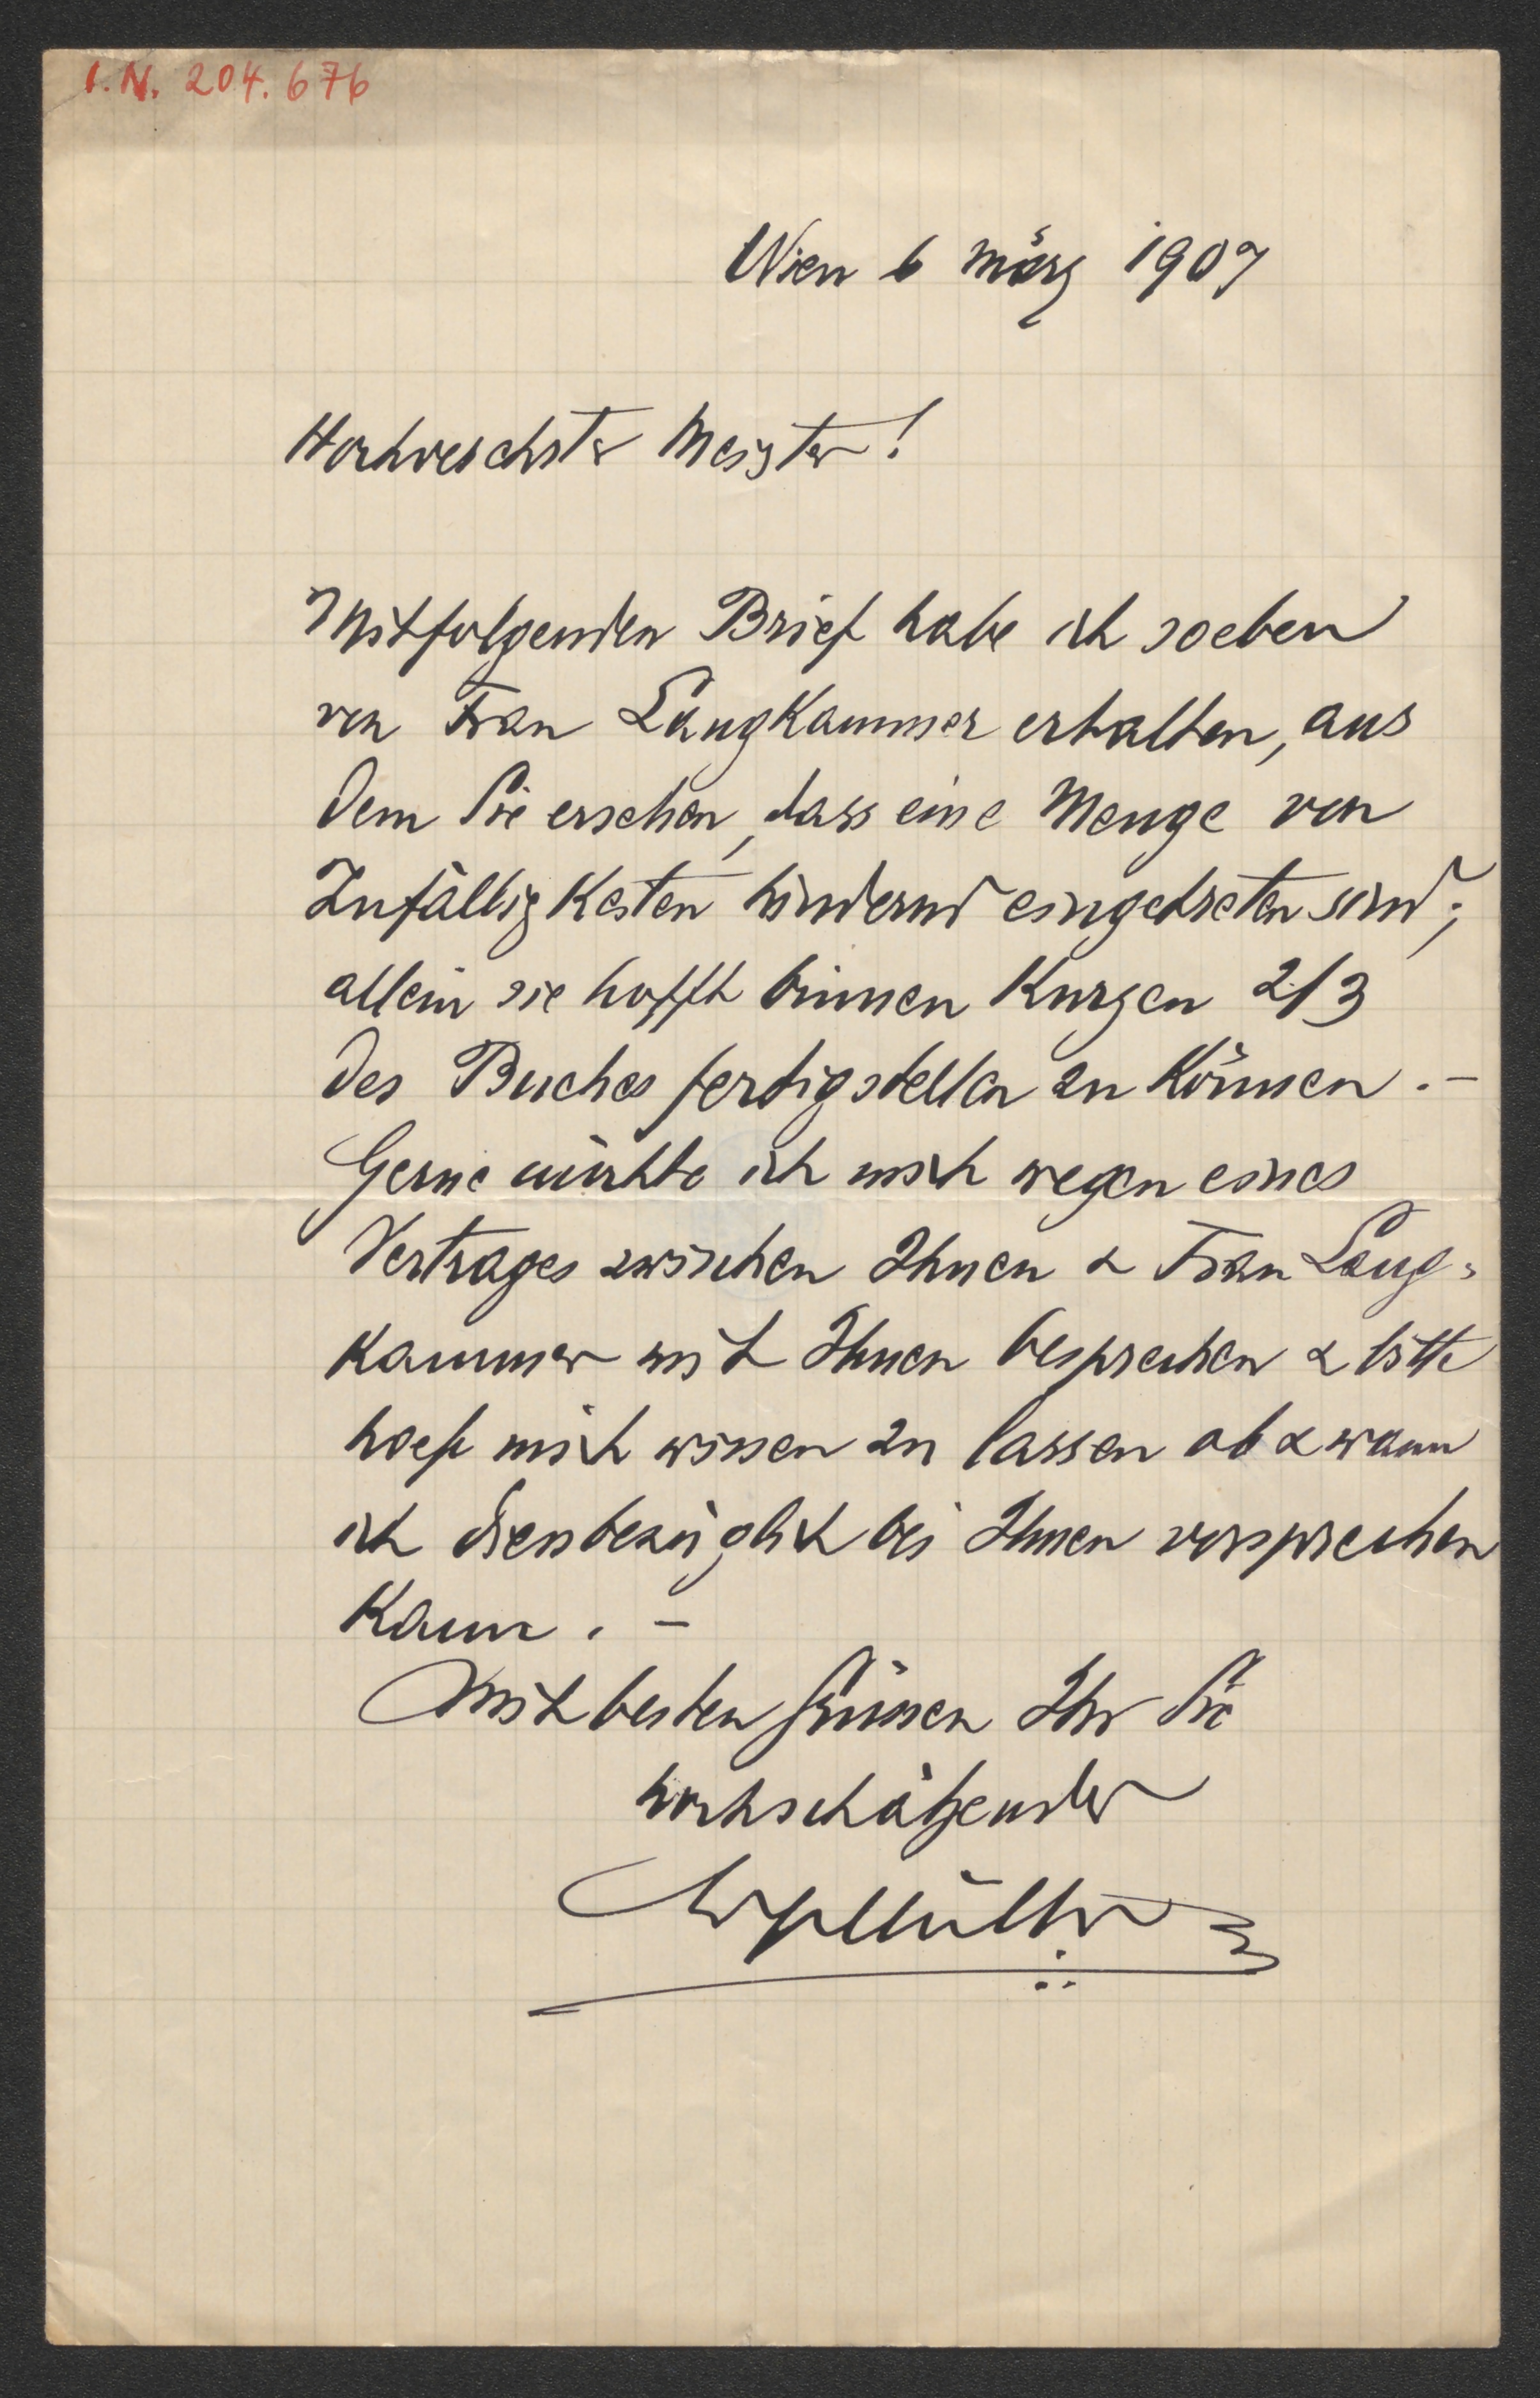 I.N. 204.676
Wien 6 März 1907
Hochverehrter Meister!
Mitfolgenden Brief habe ich soeben
von Frau Langkammer erhalten, aus
dem Sie ersehen, dass eine Menge von
Zufälligkeiten hindernd eingetreten sind;
allein sie hofft binnen Kurzen 2/3
des Buches fertigstellen zu können. –
Gerne möchte ich mich wegen eines
Vertrages zwischen Ihnen & Frau Lang-
kammer mit Ihnen besprechen & bitte
höfl mich wissen zu lassen ob & wann
ich diesbezüglich bei Ihnen vorsprechen
kann. –
Mit besten Grüssen Ihr Sie
hochschätzender